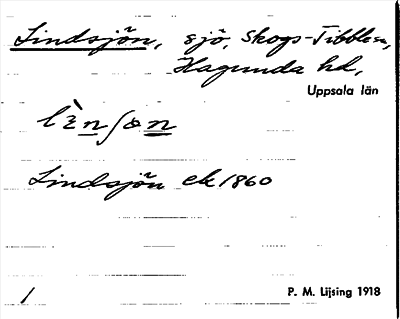 Lindsjön, sjö, Skogs-Tibble sn,
Hagunda hd,
Uppsala län
Lindsjön ek 1860
1 P. M. Lijsing 1918